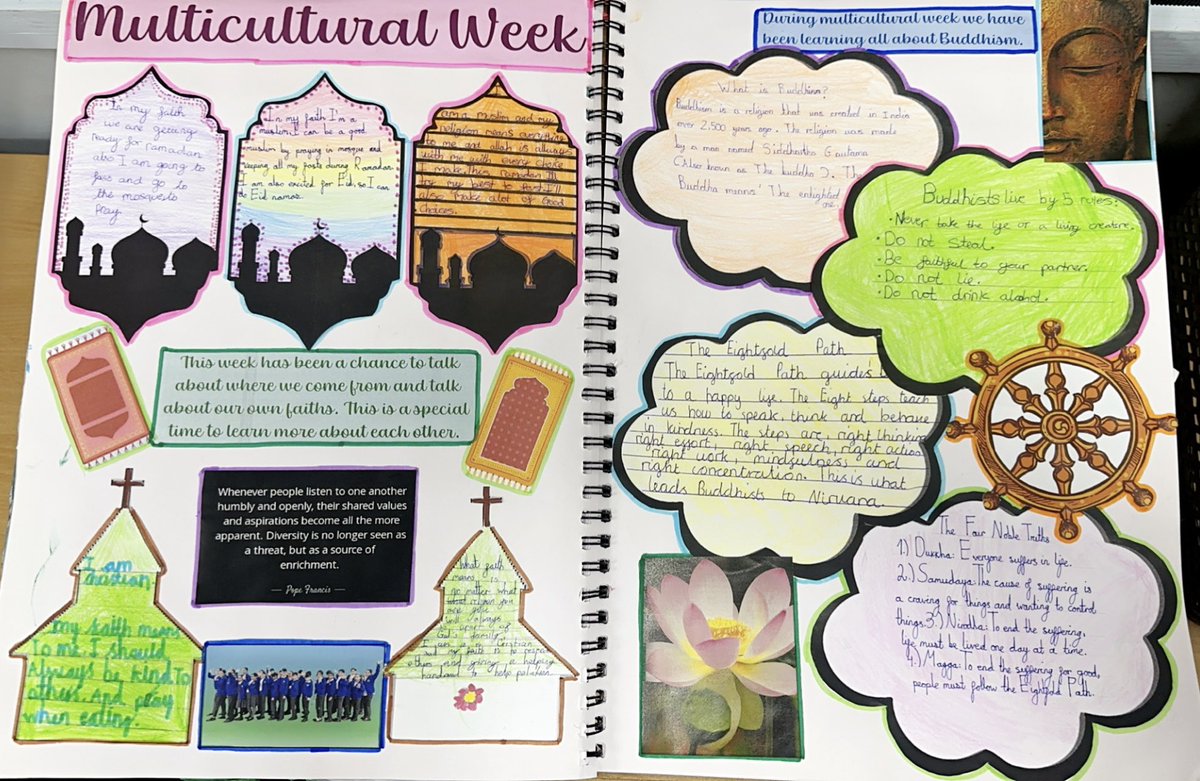 Multicultural Week
In my faith
we are getting
ready for ramadan
also I am going to
fast and go to
the mosque to
Pray.
In my faith I'm a
muslim. I can be a good
muslim by praying in mosque and
keeping all my fasts during Ramadan.
I am also excited for Eid, so I can
at Eid namaz.
am a muslim and my
religion means everything
to me and allah is allways
with me with every choice
I make. this ramadan Ill
try my best to fast. I'll
also make alot of good
choices.
This week has been a chance to talk
about where we come from and talk
about our own faiths. This is a special
time to learn more about each other.
Whenever people listen to one another
humbly and openly, their shared values
and aspirations become all the more
apparent. Diversity is no longer seen as
a threat, but as a source of
enrichment.
— Pope Francis —
I am
christian
my faith means
To me I should
Always be kind To
others and pray
when eating.
What faith
means is
no matter what
religion you
are god
will always
God's family.
I am a Christian
and my faith is to respect
others and giving a helping
hand and to help
During multicultural week we have
been learning all about Buddhism.
What is Buddhism?
Buddhism is a religion that was created in India
over 2,500 years ago. The religion was made
by a man named Siddhartha Gautama
(Also known as The buddha). The
Buddha means 'The enlighted
one.
Buddhists live by 5 rules:
• Never take the life of a living creature.
• Do not steal.
• Be faithful to your partner.
• Do not lie.
• Do not drink alcohol.
The Eightfold Path
The Eightfold Path guides
to a happy life. The Eight steps teach
us how to speak, think and behave
in kindness. The steps are, right thinking
right effort, right speech, right action,
right work, mindfulness and
right concentration. This is what
leads Buddhists to Nirvana.
The Four Noble Truths
1.) Dukkha: Everyone suffers in life.
2.) Samudaya: The cause of suffering is
a craving for things and wanting to control
things. 3.) Nirodha: To end the suffering,
life must be lived one day at a time.
4.) Magga: To end the suffering for good,
people must follow the Eightfold Path.